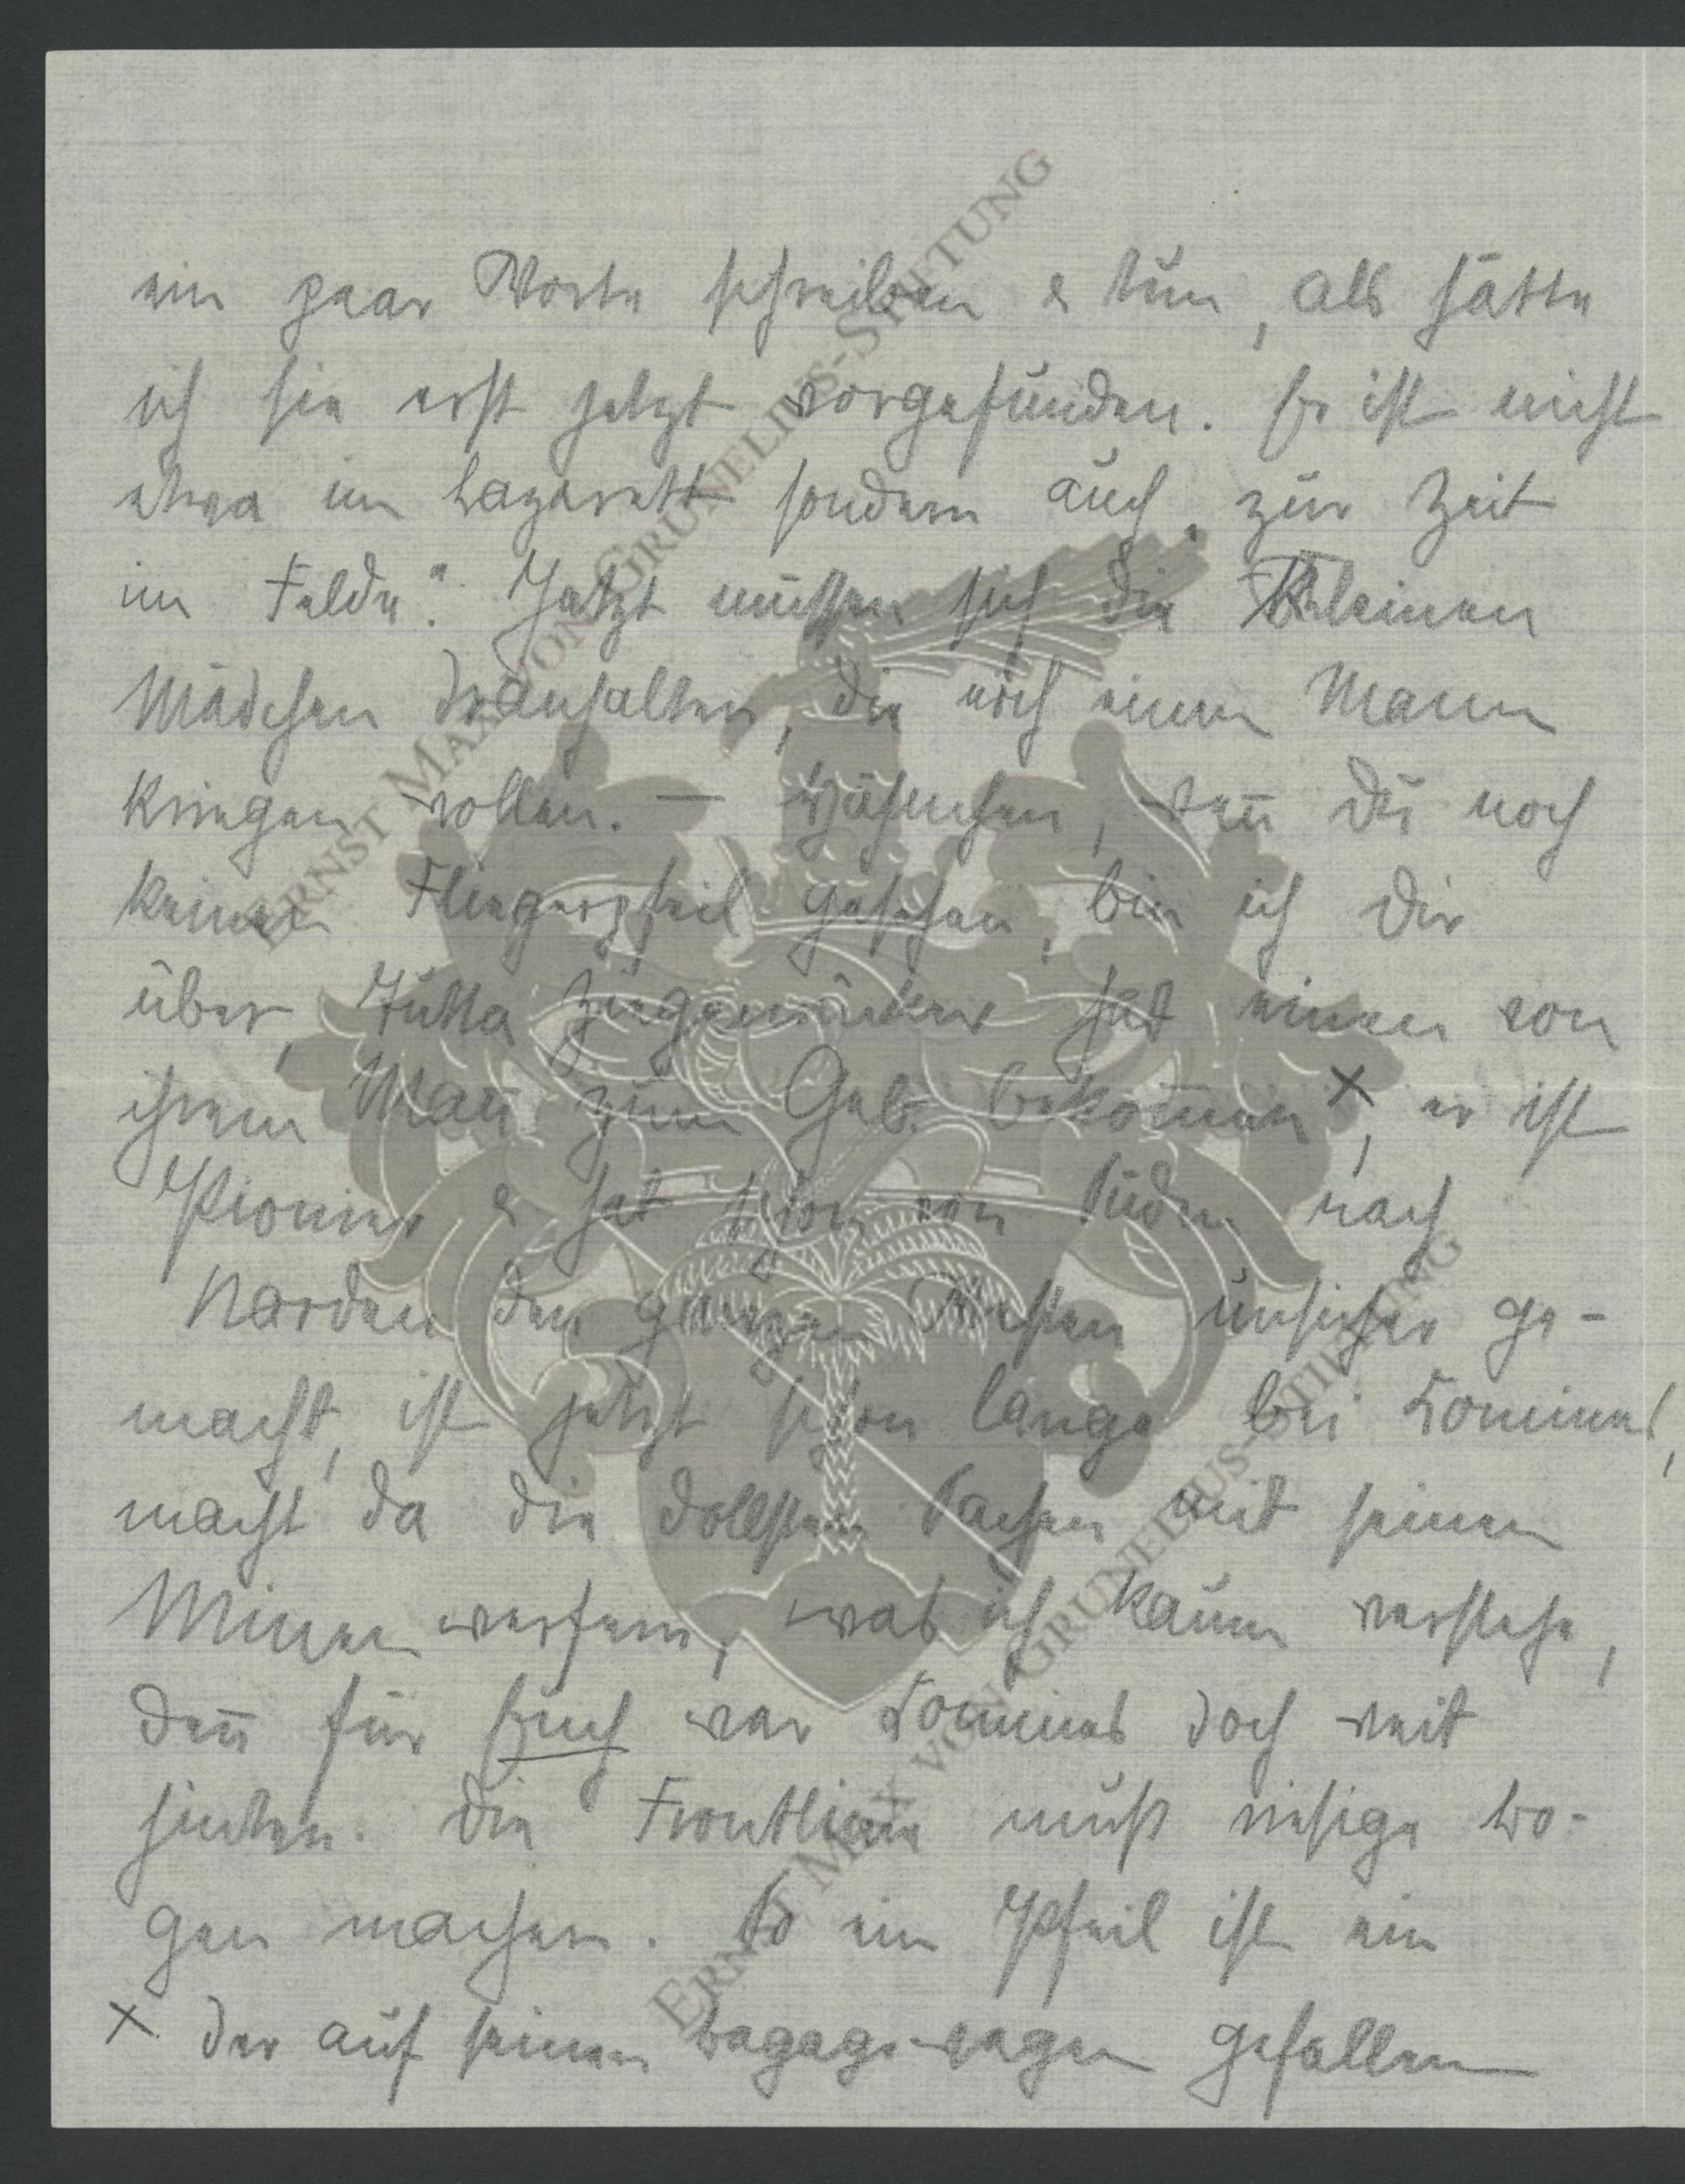 ein paar Worte schreiben & tun, als hätte
ich sie erst jetzt vorgefunden. Er ist nicht
etwa im Lazarett sondern auch „zur Zeit
im Felde“. Jetzt müssen sich die Kleinen
Mädchen dranhalten, die noch einen Mann
kriegen wollen. — wenn̄ Du noch
keinen Fliegerpfeil gesehen, bin ich Dir
über, Jutta hat einen von
ihrem Man̄ zum Geb. bekom̄en ×, er ist
Pionier & hat schon von Süden nach
Norden den ganzen Westen unsicher ge-
macht, ist jetzt schon lange bei Comines,
macht da die dollsten Sachen mit seinen
Minenwerfern, was ich kaum verstehe,
den̄ für Euch war Comines doch weit
hinten. Die Frontlinie muß riesige Bo-
gen machen. So ein Pfeil ist ein
× der auf seinen Bagage-wagen gefallen
ERNST MAX VON GRUNELIUS-STIFTUNG
ERNST MAX VON GRUNELIUS-STIFTUNG